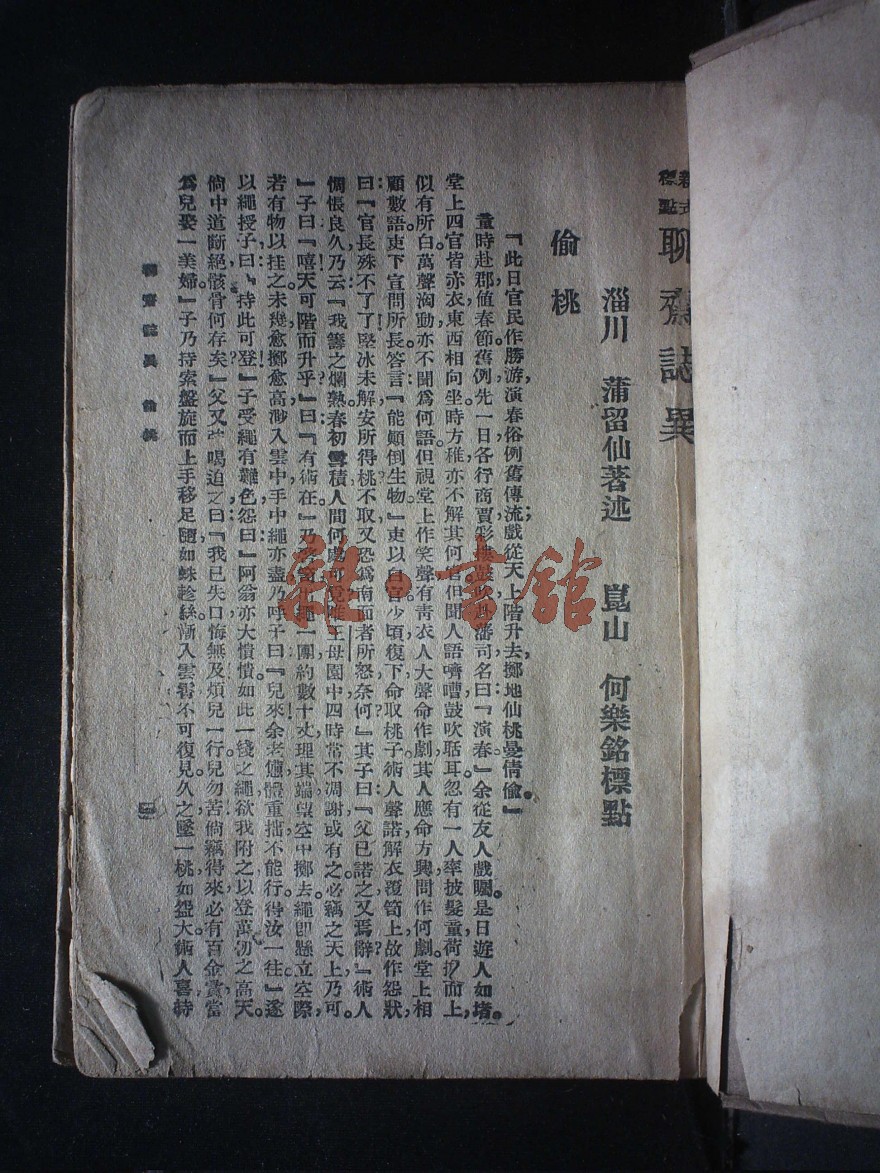 新式
標點
聊齋誌異
淄川 蒲留仙著述 崑山 何樂銘標點
偷桃
『此日官民作勝游,演春俗例舊傳流;戲從天上階升去,擲地仙桃曼倩偸。』
童時赴郡値春節舊例先一日各行商賈彩樓鼓吹赴藩司名曰『演春』余從友人戲矚。是日遊人如堵。
堂上四官皆赤衣東西相向坐。時方稚亦不解其何官但聞人語嚌嘈鼓吹聒耳忽有一人率披髮童荷擔而上,
似有所白萬聲洶動亦不聞爲何語但視堂上作笑聲有靑衣人大聲命作劇其人應命方興問作何劇堂上相
顧數語吏下宣問所長答言『能顚倒生物』吏以白官少頃復下命取桃子術人聲諾解衣覆笥上故作怨狀,
曰:『官長殊不了了堅冰未解安所得桃不取又恐爲南面者所怒奈何』其子曰『父已諾之又焉辭』術人
惆悵良久乃云『我籌之爛熟春初雪積人間何處可覓唯王母園中四時常不凋謝或有之必竊之天上乃可。
』子曰『嘻天可階而升乎』曰『有術在』乃啓笥出繩一團約數十丈理其端望空中擲去繩卽懸立空際
若有物以挂之未幾愈擲愈高渺入雲中手中繩亦盡乃呼子曰『兒來余老憊體重拙不能行得汝一往』遂
以繩授子曰『持此可登』子受繩有難色怨曰『阿翁亦大憒憒如此一綫之繩欲我附之以登萬仞之高天。
倘中道斷絕骸骨何存矣』父又强喝迫之曰『我已失口悔無及煩兒一行兒勿苦倘竊得來必有百金賞當
爲兒娶一美婦』子乃持索盤旋而上手移足隨如蛛趁絲漸入雲霄不可復見久之墜一桃如盌大術人喜持
聊齋誌異 偷桃
一
雜·書館